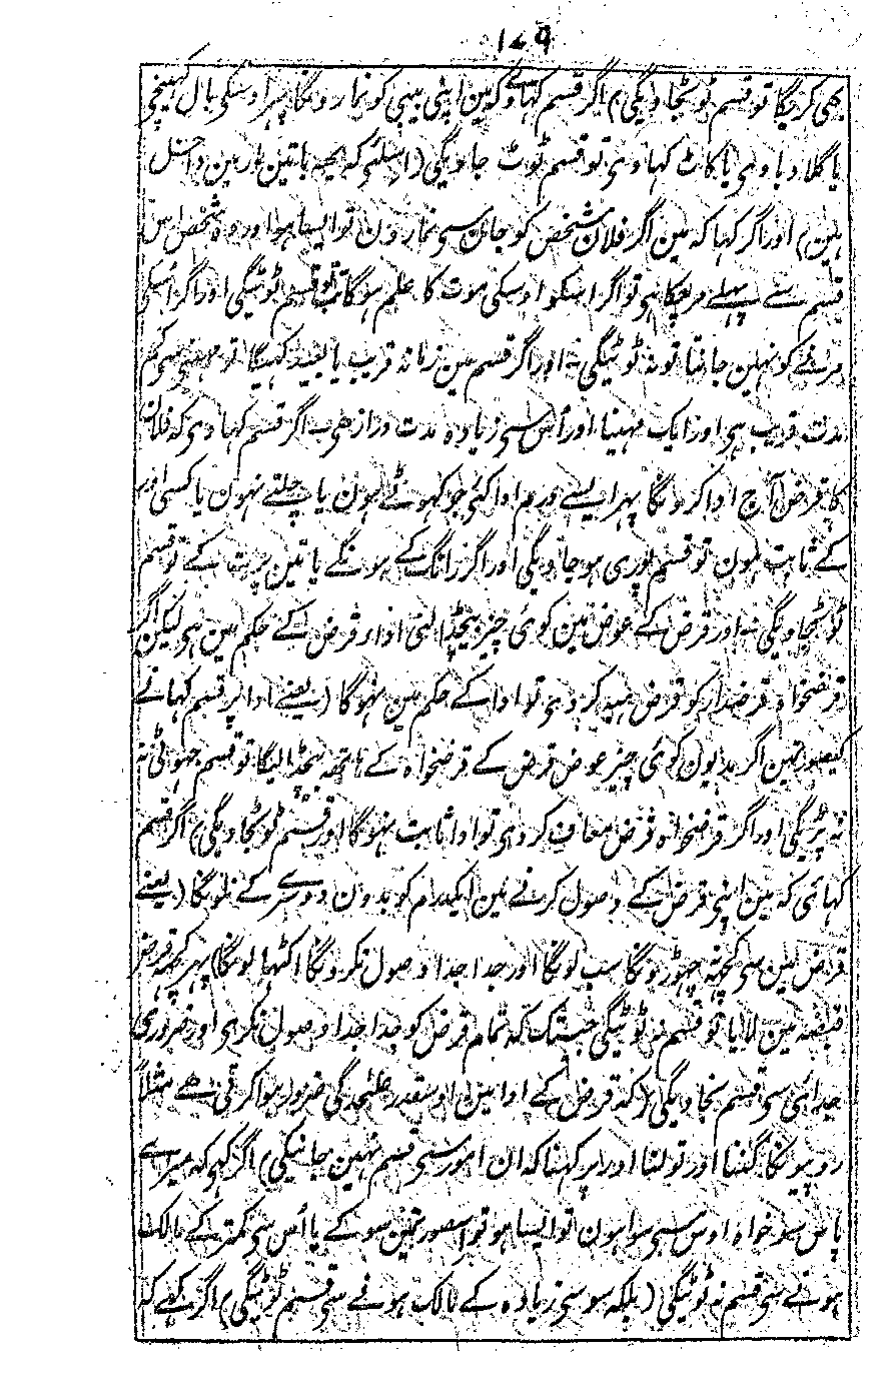 ۱۷۹
بھی کریگا تو قسم ٹوٹجاویگی) اگر قسم کہاوے کہ مین اپنی بیبی کو نمارونگا پہر اوسکی بال کہینچی
یا گلا دباوی یا کاٹ کہاوی تو قسم ٹوٹ جاویگی (اسلئی کہ یہہ باتین مارمین داخل
ہین) اور اگر کہا کہ مین اگر فلان شخص کو جان سی نمارون تو ایسا ہو اور وہ شخص اس
قسم سے پہلے مرچکا ہی تو اگر اسکو اوسکی موت کا علم ہوگا تب قسم ٹوٹیگی اور اگر اسکی
مرنے کو نہین جانتا تو نہ ٹوٹیگی اور اگر قسم مین زمانہ قریب یا بعید کہیگا تو مہینی سی کم
مدت قریب ہی اور ایک مہینا اور اُس سی زیادہ مدت دراز ہی اگر قسم کہاوی کہ فلان
کا قرض آج ادا کرونگا پہر ایسے درم ادا کئی جو کہوٹے ہون یا چلتے نہون یا کسی اور
کے ثابت ہون تو قسم پوری ہو جاویگی اور اگر رانگ کے ہونگے یا تین پرت کے تو قسم
ٹوٹجاویگی اور قرض کے عوض مین کوئی چیز بیچڈالنی ادار قرض کے حکم مین ہی لیکن اگر
قرضخواہ قرضدار کو قرض ہبہ کر دی تو ادا کے حکم مین نہوگا (یعنے ادا پر قسم کہانے
کیصورتمین اگر مدیون کوئی چیز عوض قرض کے قرضخواہ کے ہاتھہ بیچڈالیگا تو قسم جہوٹی نہ
نہ پڑیگی اور اگر قرضخواہ قرض معاف کر دی تو ادا ثابت نہوگا اور قسم ٹوٹجاویگی) اگر قسم
کہائی کہ مین اپنی قرض کے وصول کرنے مین ایکدرم کو بدون دوسرے کے نلونگا (یعنے
قرض مین سی کچہہ نہ چہوڑونگا سب لونگا اور جدا جدا وصول نکرونگا اکٹہا لونگا) پہر کچہہ قرض
قبضہ مین لایا تو قسم نہ ٹوٹیگی جبتک کہ تمام قرض کو جدا جدا وصول نکری اور ضروری
جدائی سی قسم نجاویگی (کہ قرض کے ادا مین اوسقدر علیحدگی ضرور ہوا کرتی ہے مثلاً
روپیونکا گننا اور تولنا اور پرکہنا کہ ان امور سی قسم نہین جانیکی) اگر کہی کہ میرے
پاس سو خواہ اوس سی سوا ہون تو ایسا ہو تو اسصورتمین سو کے یا اُس سی کمتر کے مالک
ہونے سی قسم نہ ٹوٹیگی (بلکہ سو سی زیادہ کے مالک ہونے سی قسم ٹوٹیگی) اگر کہے کہ